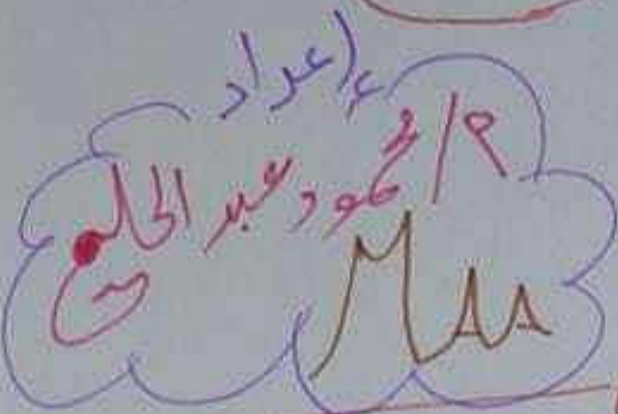 إعداد
م/ محمود عبد الحليم
MAA